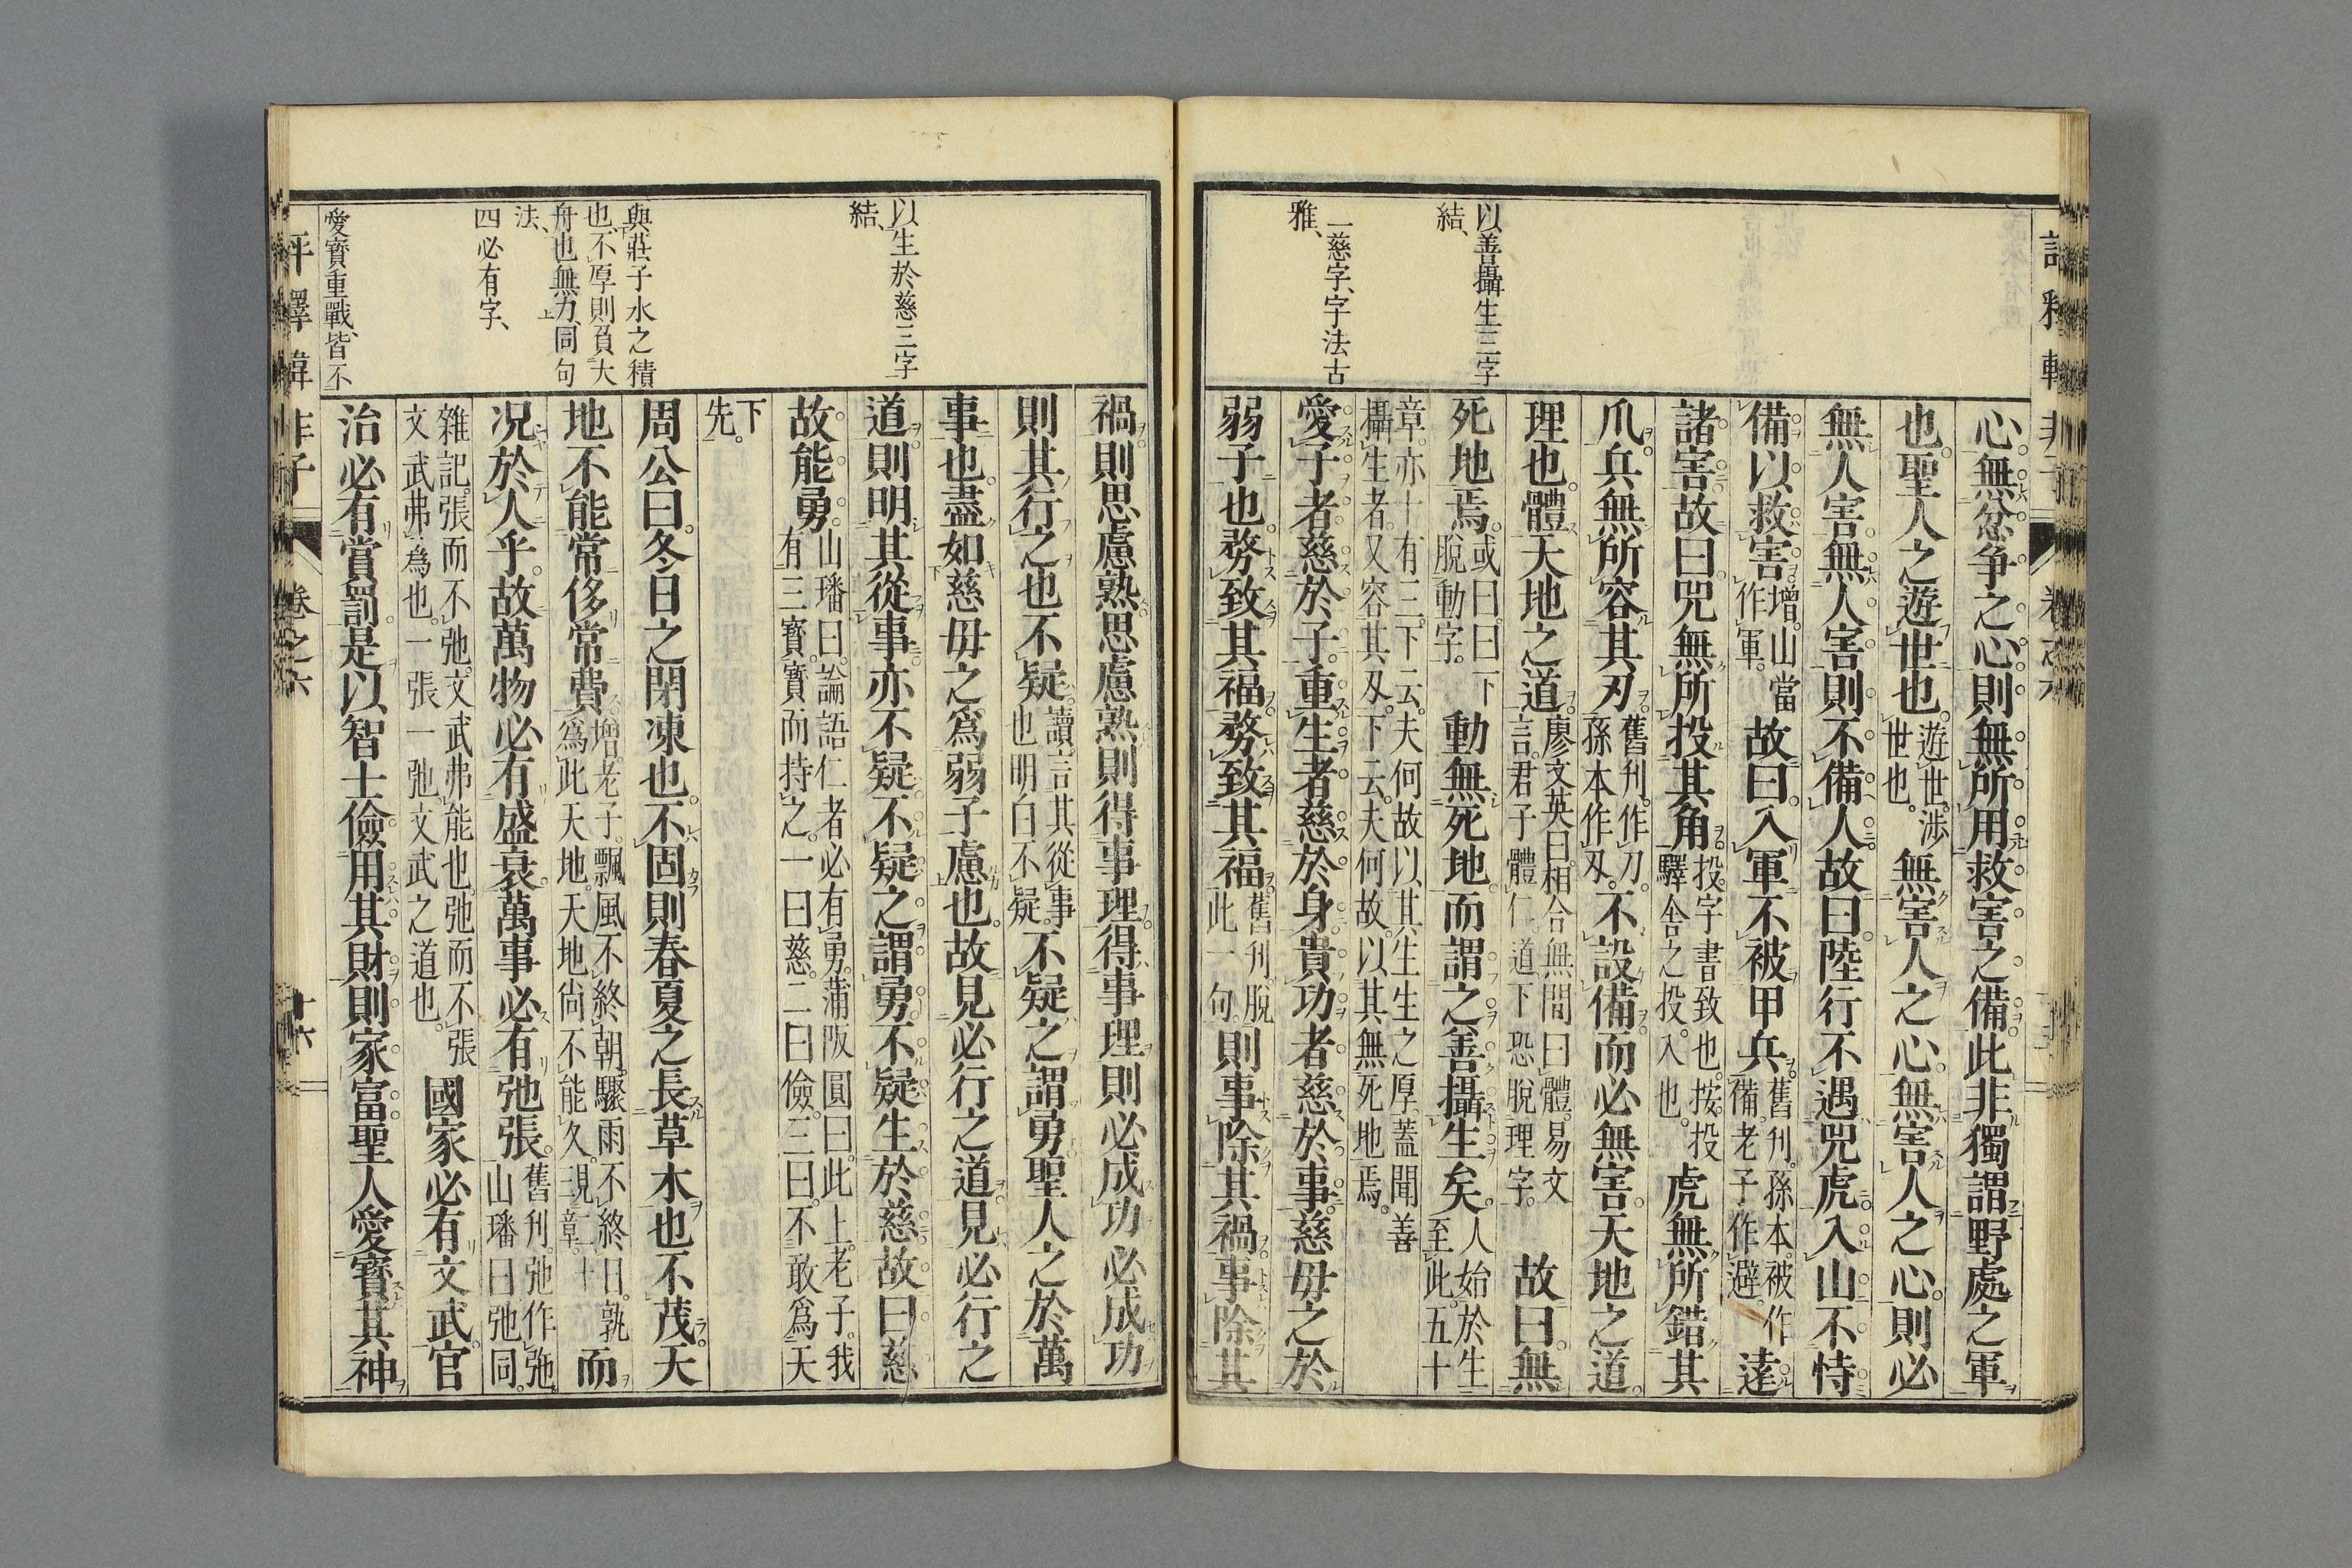 評釋韓非子 卷之六
以善攝生三字
結、
一慈字、字法古
雅、
心。無忿争之心。則無所用救害之備。此非獨謂野處之軍
也。聖人之遊世也。遊世。渉世也。無害人之心。無害人之心。則必
無人害。無人害。則不備人。故曰。陸行不遇兕虎。入山不恃
備以救害。增。山當作軍。故曰。入軍不被甲兵。舊刋。孫本。被作備。老子作避。遠
諸害。故曰。兕無所投其角。投。字書致也。按。投驛舎之投。入也。虎無所錯其
爪。兵無所容其刃。舊刋。作刀。孫本作刄。不設備而必無害。天地之道。
理也。體天地之道。廖文英曰。相合無間曰體。易文言。君子體仁。道下恐脫理字。故曰。無
死地焉。或曰。曰下脫動字。動無死地。而謂之善攝生矣。人始於生至此。五十
章。亦十有三。下云。夫何故。以其生生之厚。蓋聞善攝生者。又容其刄。下云。夫何故。以其無死地焉。
愛子者。慈於子。重生者。慈於身。貴功者。慈於事。慈母之於
弱子也。務致其福。務致其福。舊刋。脫此一句。則事除其禍。事除其
以生於慈三字
結、
與莊子水之積
也、不厚則負大
舟也無力、同句
法、
四必有字、
愛寶重戰、皆不
禍。則思慮熟。思慮熟。則得事理。得事理。則必成功。必成功。
則其行之也不疑。讀。言其從事也明白不疑。不疑之謂勇。聖人之於萬
事也。盡如慈母之爲弱子慮也。故見必行之道。見必行之
道。則明其從事亦不疑。不疑之謂勇。不疑生於慈。故曰慈
故能勇。山璠曰。論語仁者必有勇。蒲阪圓曰。此上。老子。我有三寶。寶而持之。一曰慈。二曰儉。三曰。不敢爲天
下先。
周公曰。冬日之閉凍也。不固。則春夏之長草木也不茂。天
地不能常侈常費。增。老子。飄風不終朝。驟雨不終日。孰爲此。天地。天地尙不能久。見二十三章。而
況於人乎。故萬物必有盛衰。萬事必有弛張。舊刋。弛作弛。山璠曰。弛同。
雜記。張而不弛。文武弗能也。弛而不張。文武弗爲也。一張一弛。文武之道也。國家必有文武。官
治必有賞罰。是以智士儉用其財。則家富。聖人愛寶其神。
評釋韓非子 卷之六 十六